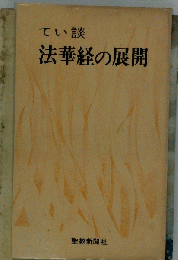 てい談
法華経の展開
聖教新聞社